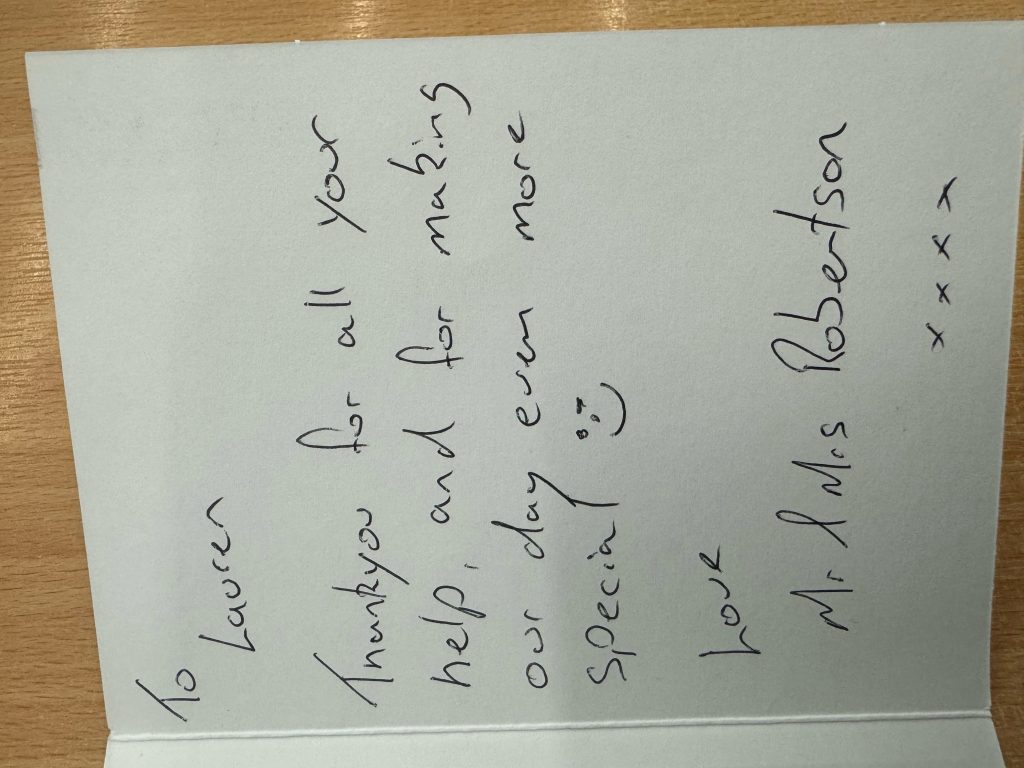 To
Lauren
Thankyou for all your
help, and for making
our day even more
special :)
Love
Mr & Mrs Robertson
x x x x